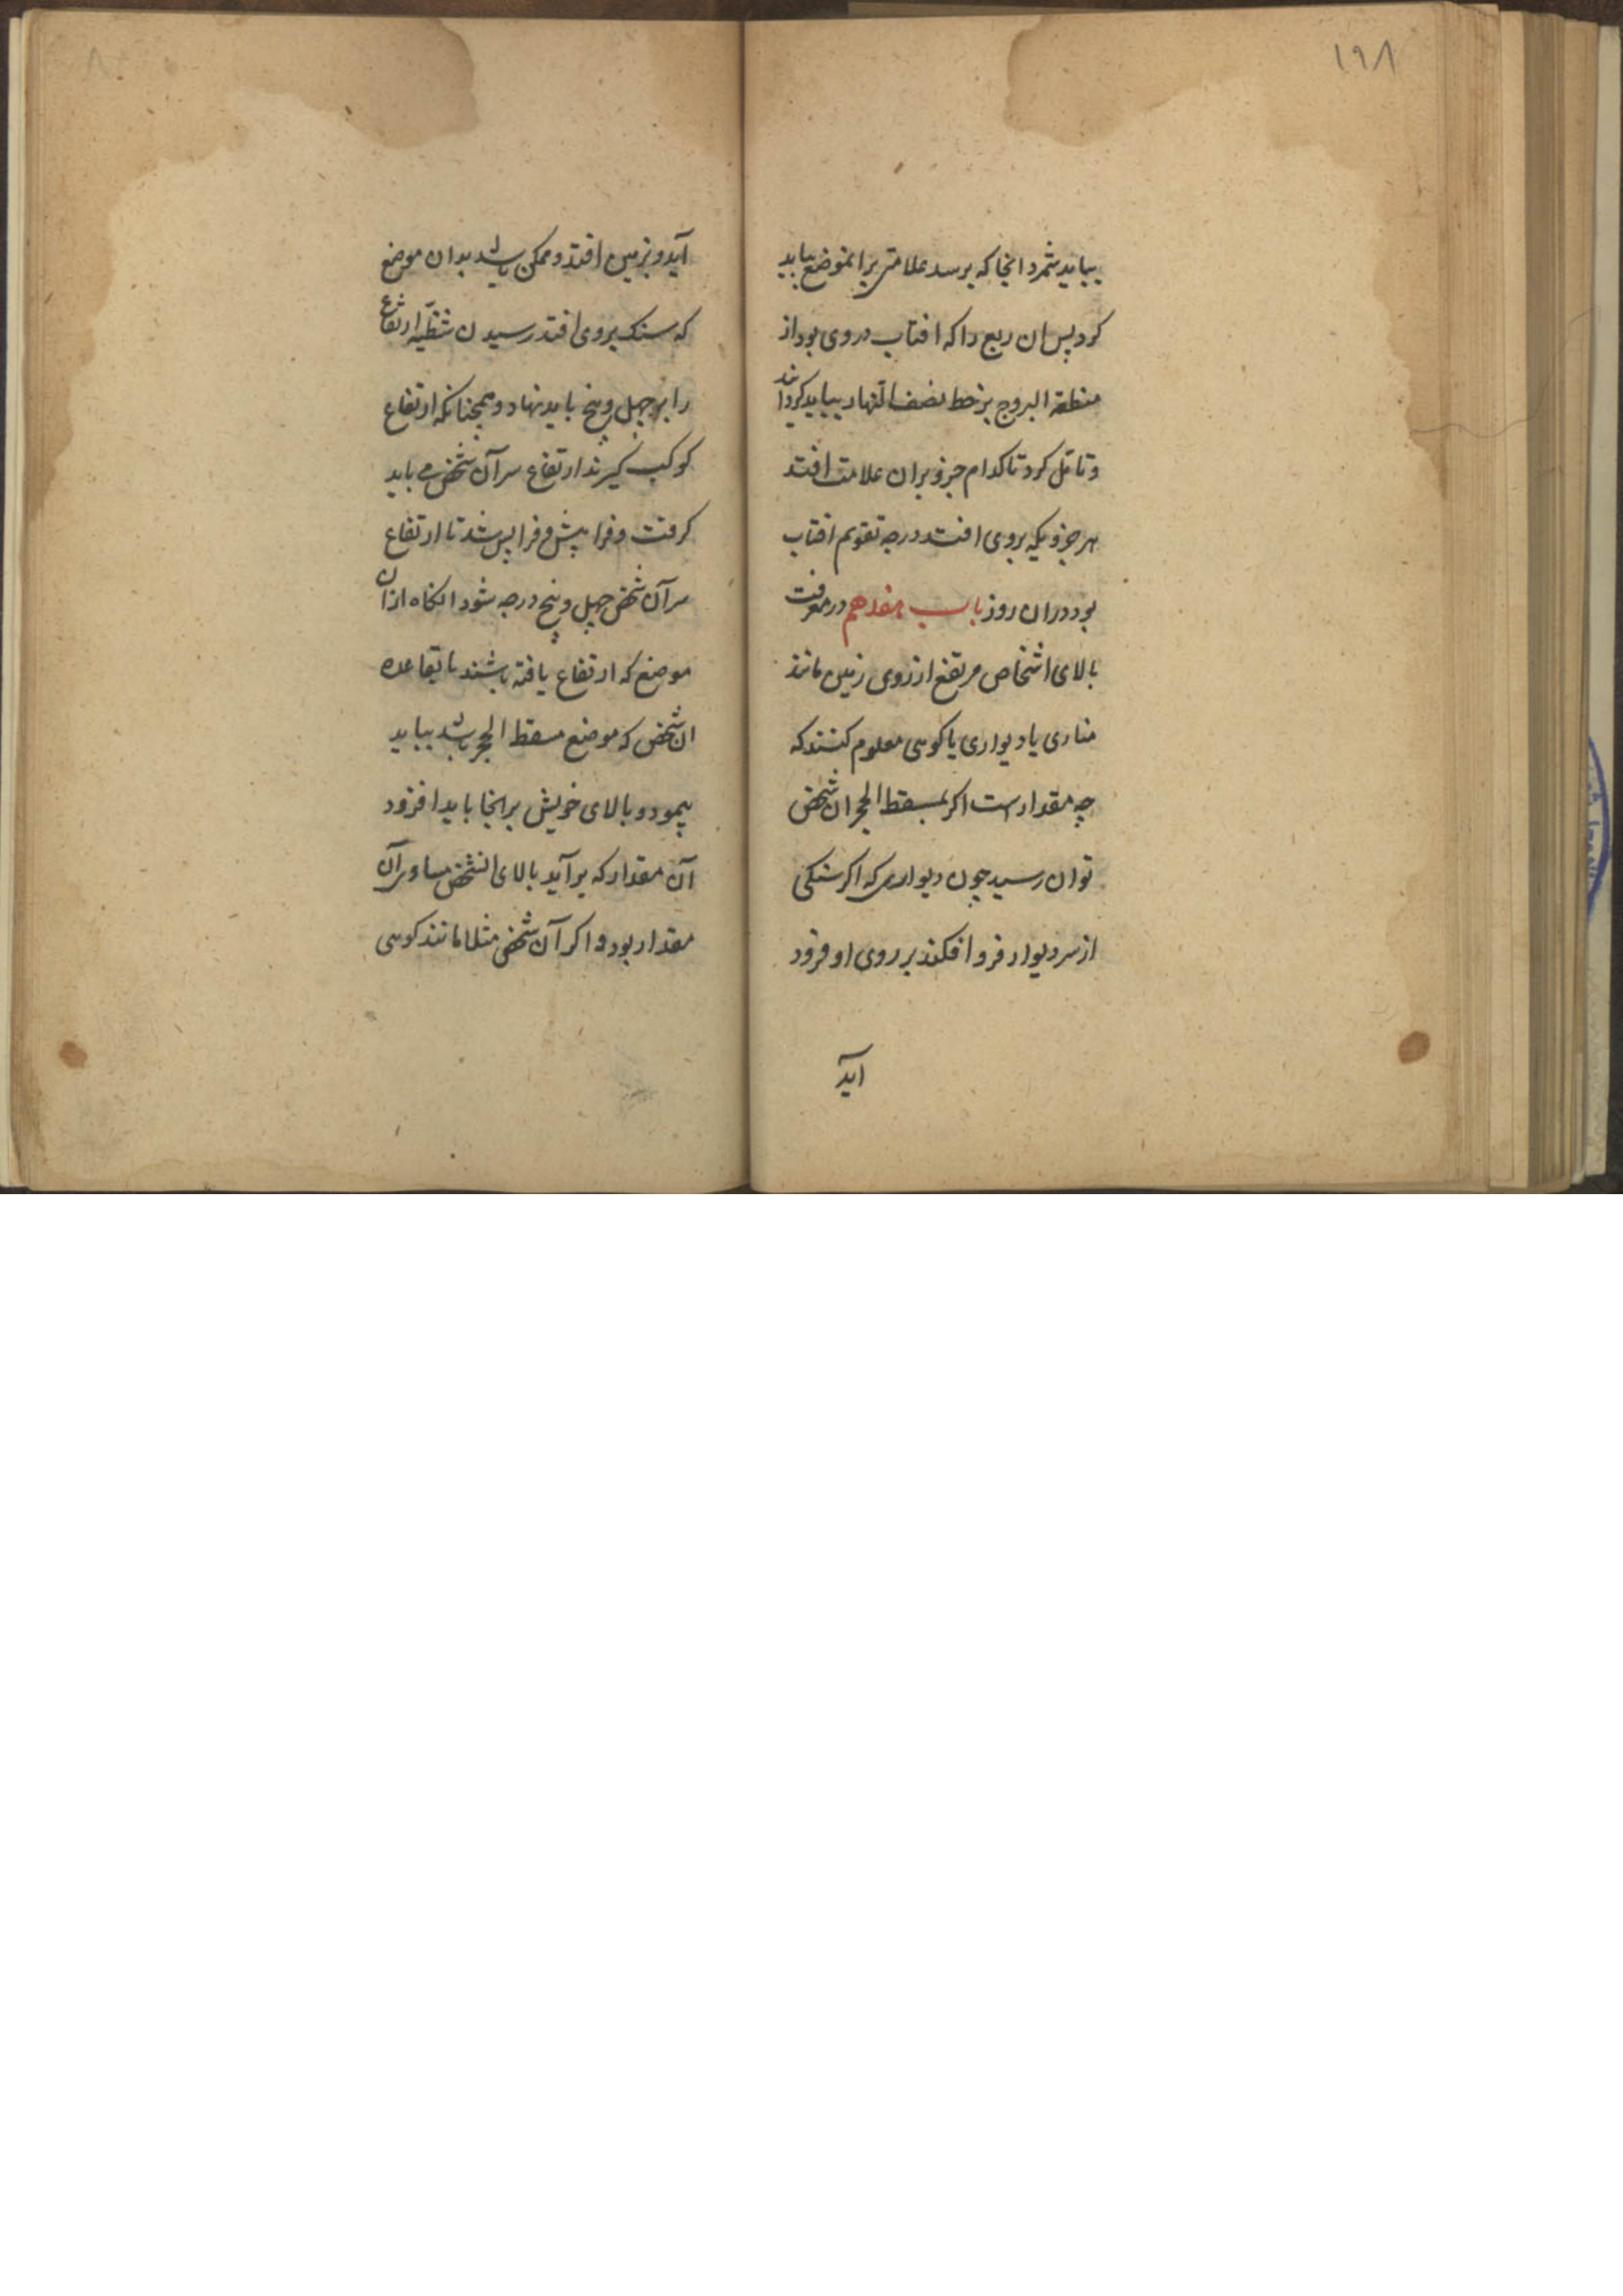 ۱۹۸
ببایدشمرد انجا که برسد علامتی برانموضع بباید
کرد پس ان ربع را که افتاب در وی بود از
منطقة البروج بر خط نصف النهار بباید کردانید
و تامل کرد تا کدام جزو بران علامت افتد
هر جزویکه بروی افتد درجه تقویم افتاب
بود دران روز باب هفدهم در معرفت
بالای اشخاص مرتفع از روی زمین مانند
مناری یا دیواری یا کوهی معلوم کنند که
چه مقدارست اکر بمسقط الحجر ان شخص
توان رسید چون دیواری که اکر سنکی
از سر دیوار فرو افکند بر روی او فرود
آید
آید و بزمین افتد و ممکن باشد بدان موضع
که سنک بروی افتد رسیدن شظیّه ارتفاع
را بر چهل و پنج باید نهاد و همچنانکه ارتفاع
کوکب کیرند ارتفاع سر آن شخص می باید
کرفت و فرا پیش و فرا پس شد تا ارتفاع
سر آن شخص چهل و پنج درجه شود انکاه ازان
موضع که ارتفاع یافته باشند تا بقاعده
ان شخص که موضع مسقط الحجر باشد بباید
پیمود و بالای خویش برانجا باید افزود
آن مقدار که برآید بالای انشخص مساوی آن
مقدار بود و اکر آن شخص مثلا مانند کوهی